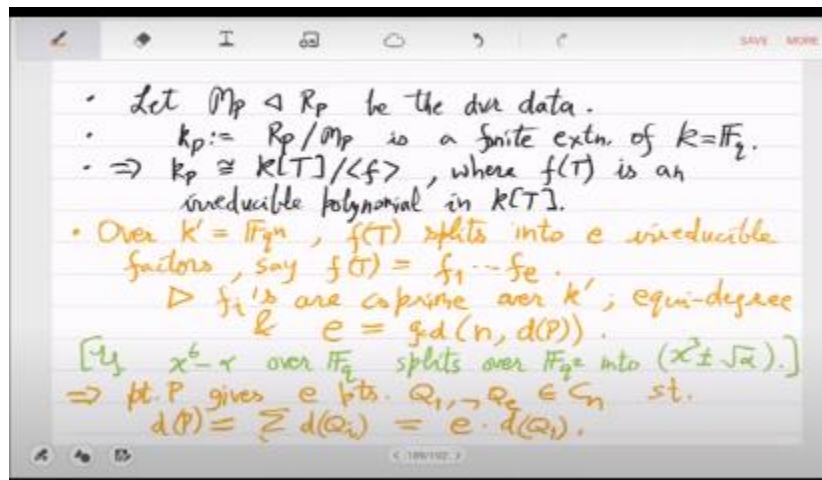 SAVE MORE
· Let 𝔪_P ◁ R_P be the dvr data.
· k_P := R_P/𝔪_P is a finite extn. of k=𝔽_q.
· ⇒ k_P ≅ k[T]/<f>, where f(T) is an
irreducible polynomial in k[T].
· Over k' = 𝔽_qⁿ, f(T) splits into e irreducible
factors, say f(T) = f₁ ··· f_e.
▷ f_i's are coprime over k'; equi-degree
& e = gcd(n, d(P)).
[Eg x⁶-α over 𝔽_q splits over 𝔽_q² into (x³±√α).]
⇒ pt. P gives e pts. Q₁,..,Q_e ∈ C_n st.
d(P) = Σ d(Q_i) = e·d(Q₁).
< 189/192 >